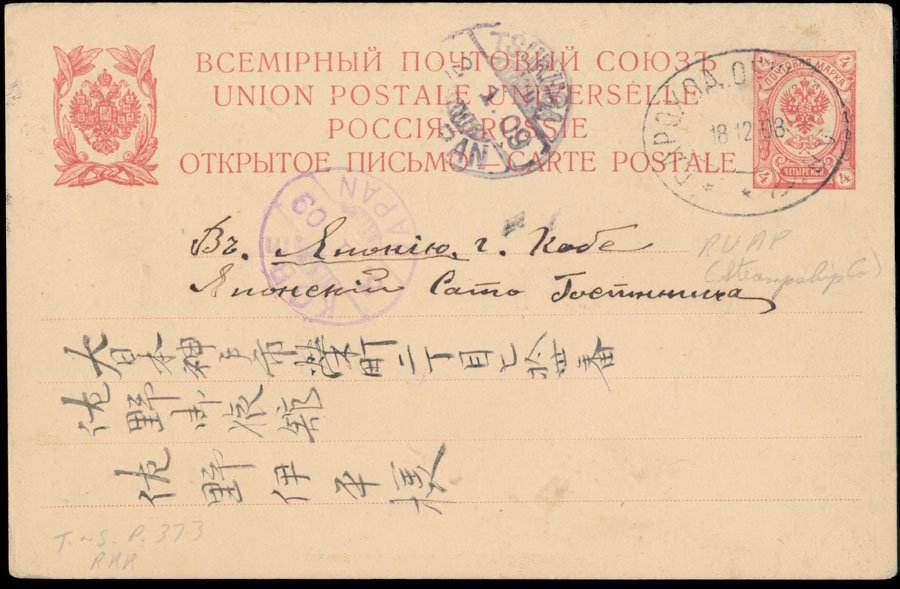 ВСЕМІРНЫЙ ПОЧТОВЫЙ СОЮЗЪ
UNION POSTALE UNIVERSELLE
РОССІЯ RUSSIE
ОТКРЫТОЕ ПИСЬМО—CARTE POSTALE
4 4
ПОЧТОВАЯ МАРКА
4 4
18 12 08
TSURUGA
1. 09
JAPAN
KOBE
09
JAPAN
Въ Японію. г. Кобе
Японскій Сато Гостинница
RUAP
(Steamship Co)
大日本神戸市 町二丁目七拾 番
佐野 旅館
佐野伊平様
T. & S. P. 373
RRR